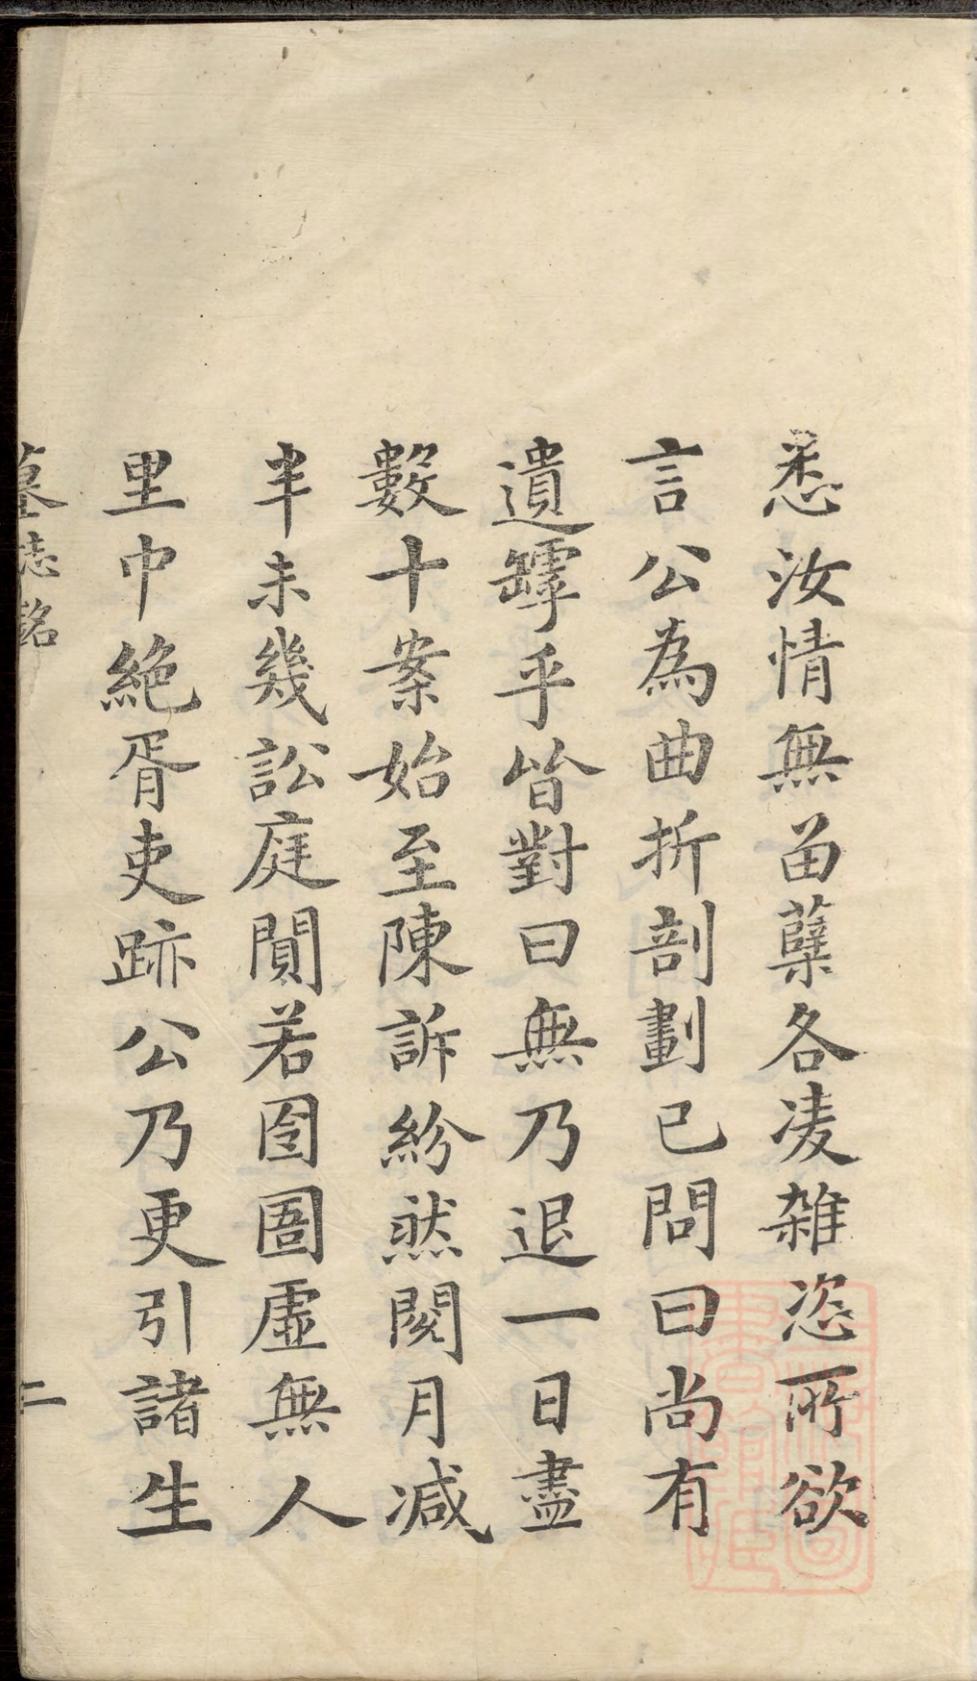 悉汝情無畱蘖各凌雜恣所欲
言公為曲折剖劃已問曰尚有
遺罅乎皆對曰無乃退一日盡
數十案始至陳訴紛然閱月減
半未幾訟庭闃若囹圄虛無人
里巾絕胥吏跡公乃更引諸生
墓志銘
二